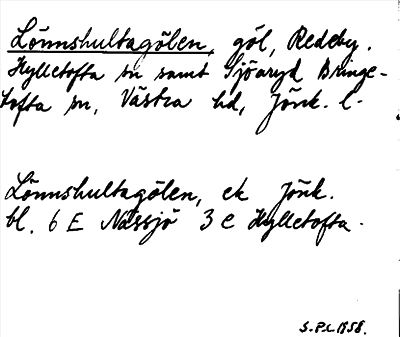 Lönnshultagölen, göl, Redeby.
Hylletofta sn samt Sjöaryd Bringe-
tofta sn, Västra hd, Jönk. l.
Lönnshultagölen, ek Jönk.
bl. 6 E Nässjö 3 e Hylletofta.
1958.